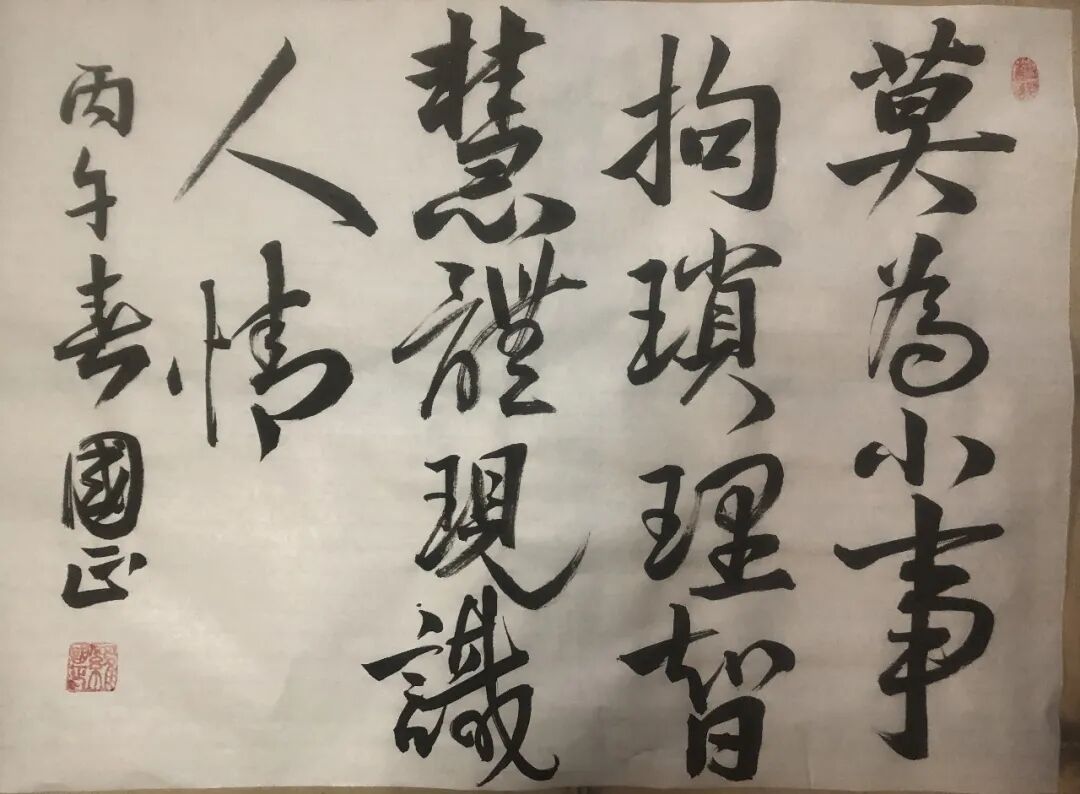 莫為小事
拘瑣理智
慧體現識
人情
丙午春 國正